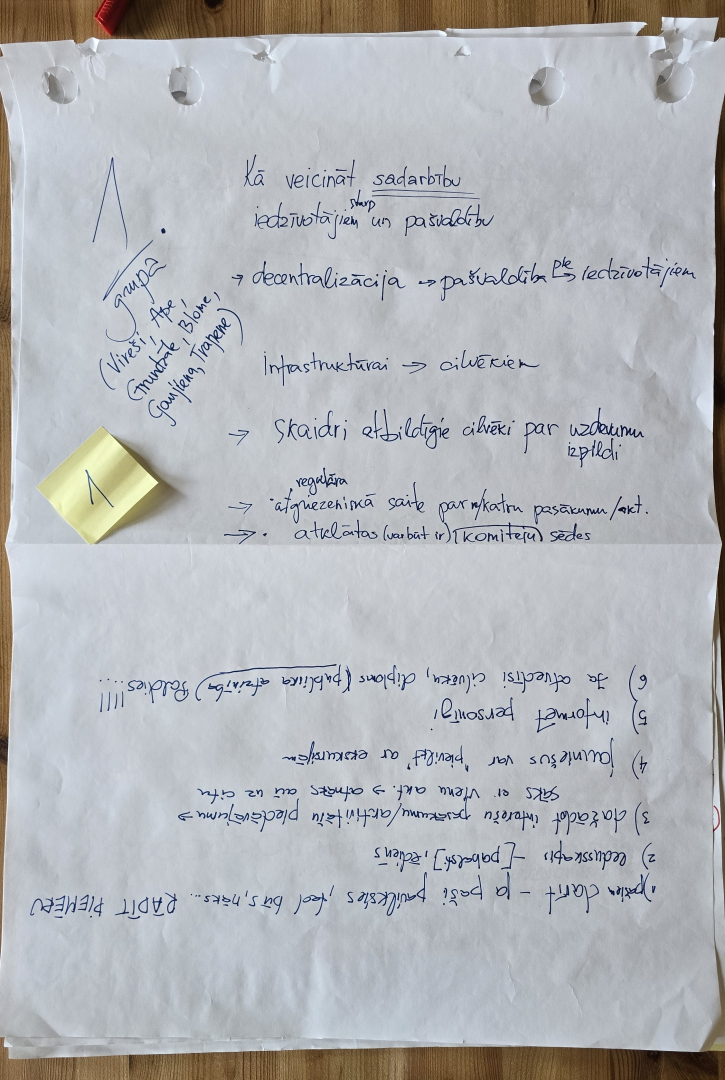 1.
grupa
(Vireši, Ape,
Gaujiena, Trapene)
1
Kā veicināt sadarbību
starp
iedzīvotājiem un pašvaldību
→ decentralizācija → pašvaldība pie → iedzīvotājiem
Infrastruktūrai → cilvēkiem
→ Skaidri atbildīgie cilvēki par uzdevumu
izpildi
regulāra
→ · atgriezeniskā saite par katru pasākumu/akt.
→ · atklātas (varbūt ir) komiteju sēdes
1) pašiem darīt – ja paši pavilksies, tad būs, nāks... RĀDĪT PIEMĒRU
2) ledusskapis – [pabalsti], ēdiens
3) dažādot interešu pasākumu/aktivitāšu piedāvājumu →
sāks ar vienu akt. → atnāks arī uz citu
4) jauniešus var "pievilkt" ar ekskursijām
5) informēt personīgi
6) Ja atvedīsi cilvēku, diploms (publiska atzinība) Paldies....!!!!